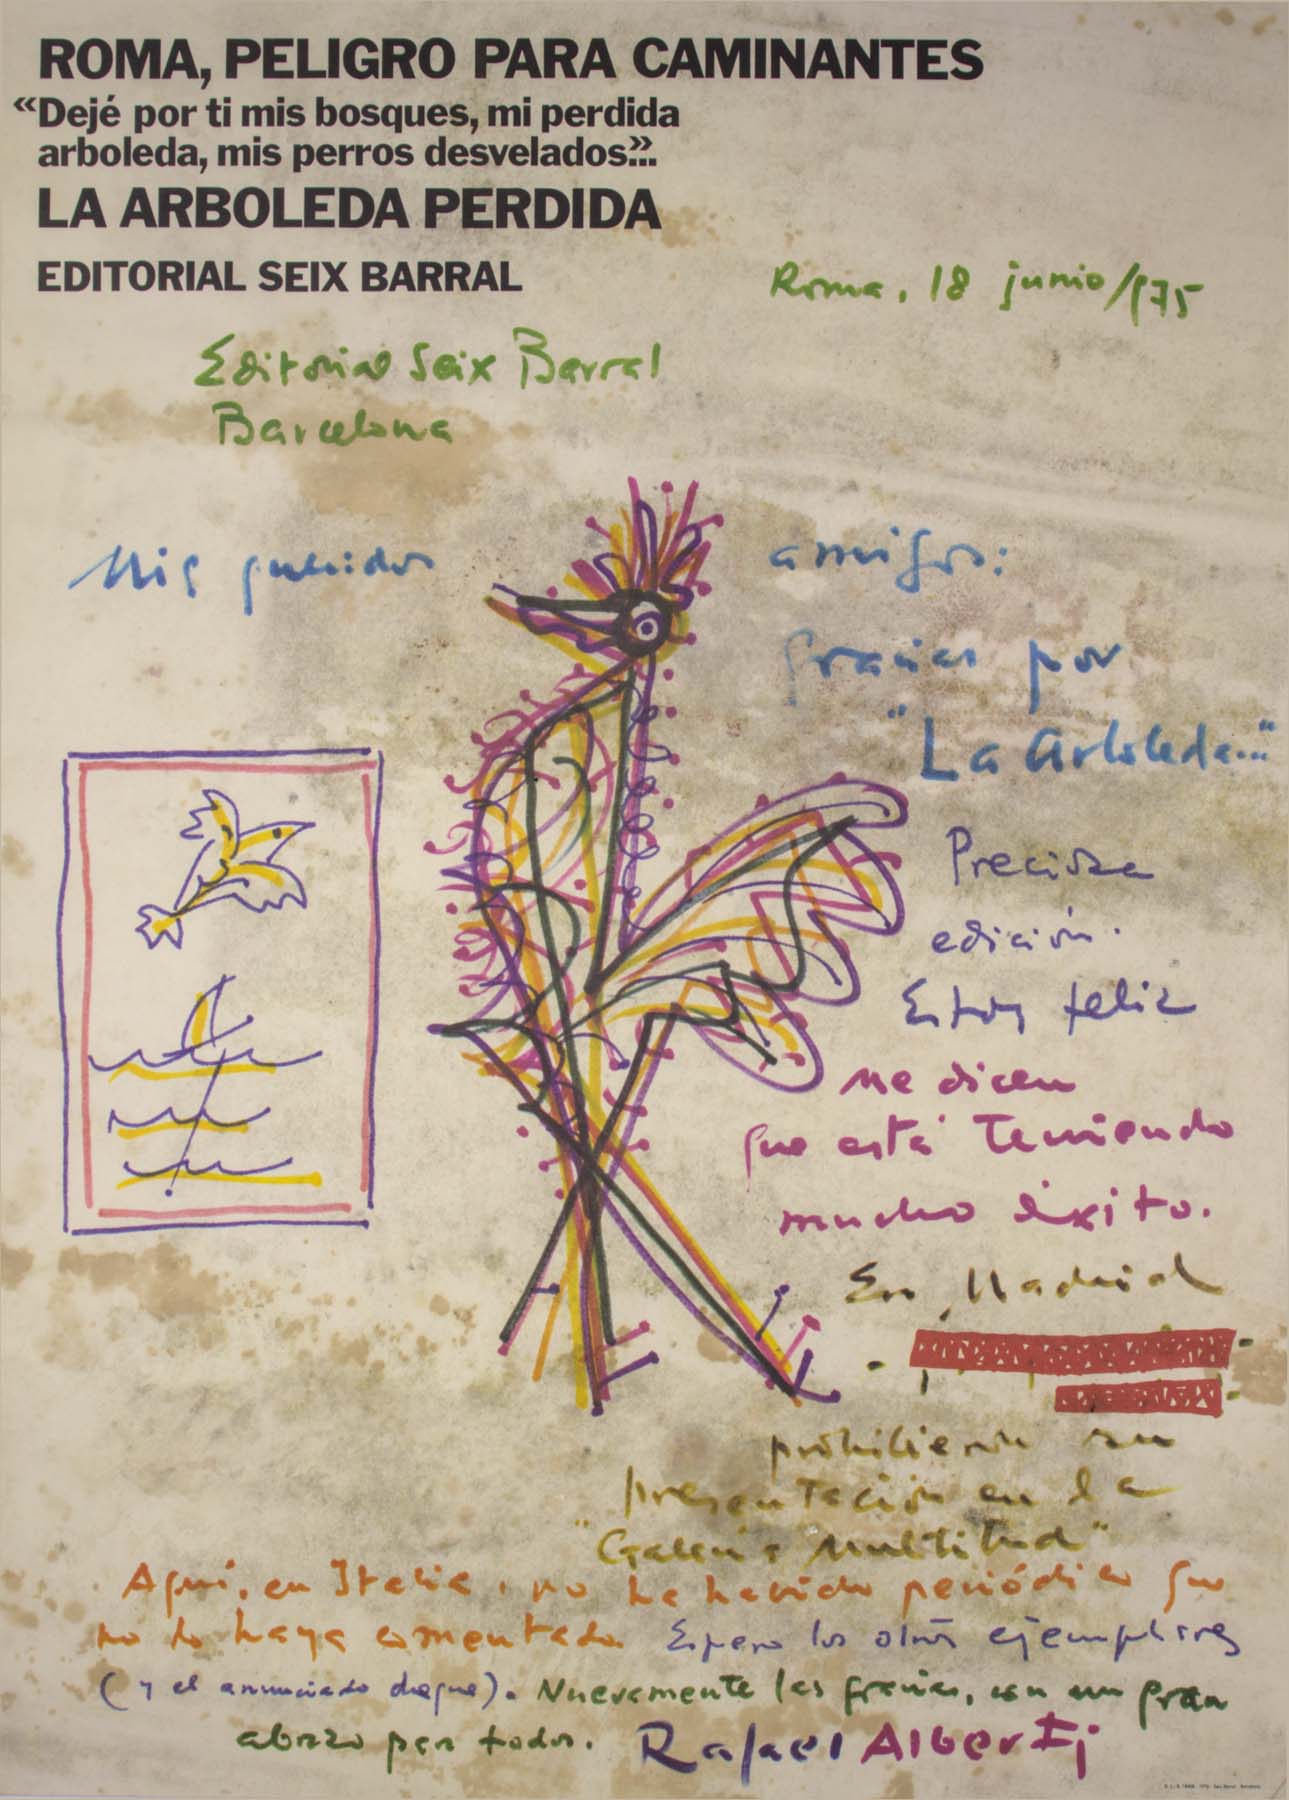 ROMA, PELIGRO PARA CAMINANTES
«Dejé por ti mis bosques, mi perdida
arboleda, mis perros desvelados...»
LA ARBOLEDA PERDIDA
EDITORIAL SEIX BARRAL
Roma, 18 junio/975
Editorial Seix Barral
Barcelona
Mis queridos amigos:
gracias por
"La Arboleda..."
Preciosa
edición.
Estoy feliz
me dicen
que está teniendo
mucho éxito.
En Madrid
prohibieron su
presentación en la
"Galería Multitud"
Aquí, en Italia, no ha habido periódico que
no lo haya comentado. Espero los otros ejemplares
(y el anunciado cheque). Nuevamente las gracias, con un gran
abrazo para todos. Rafael Alberti